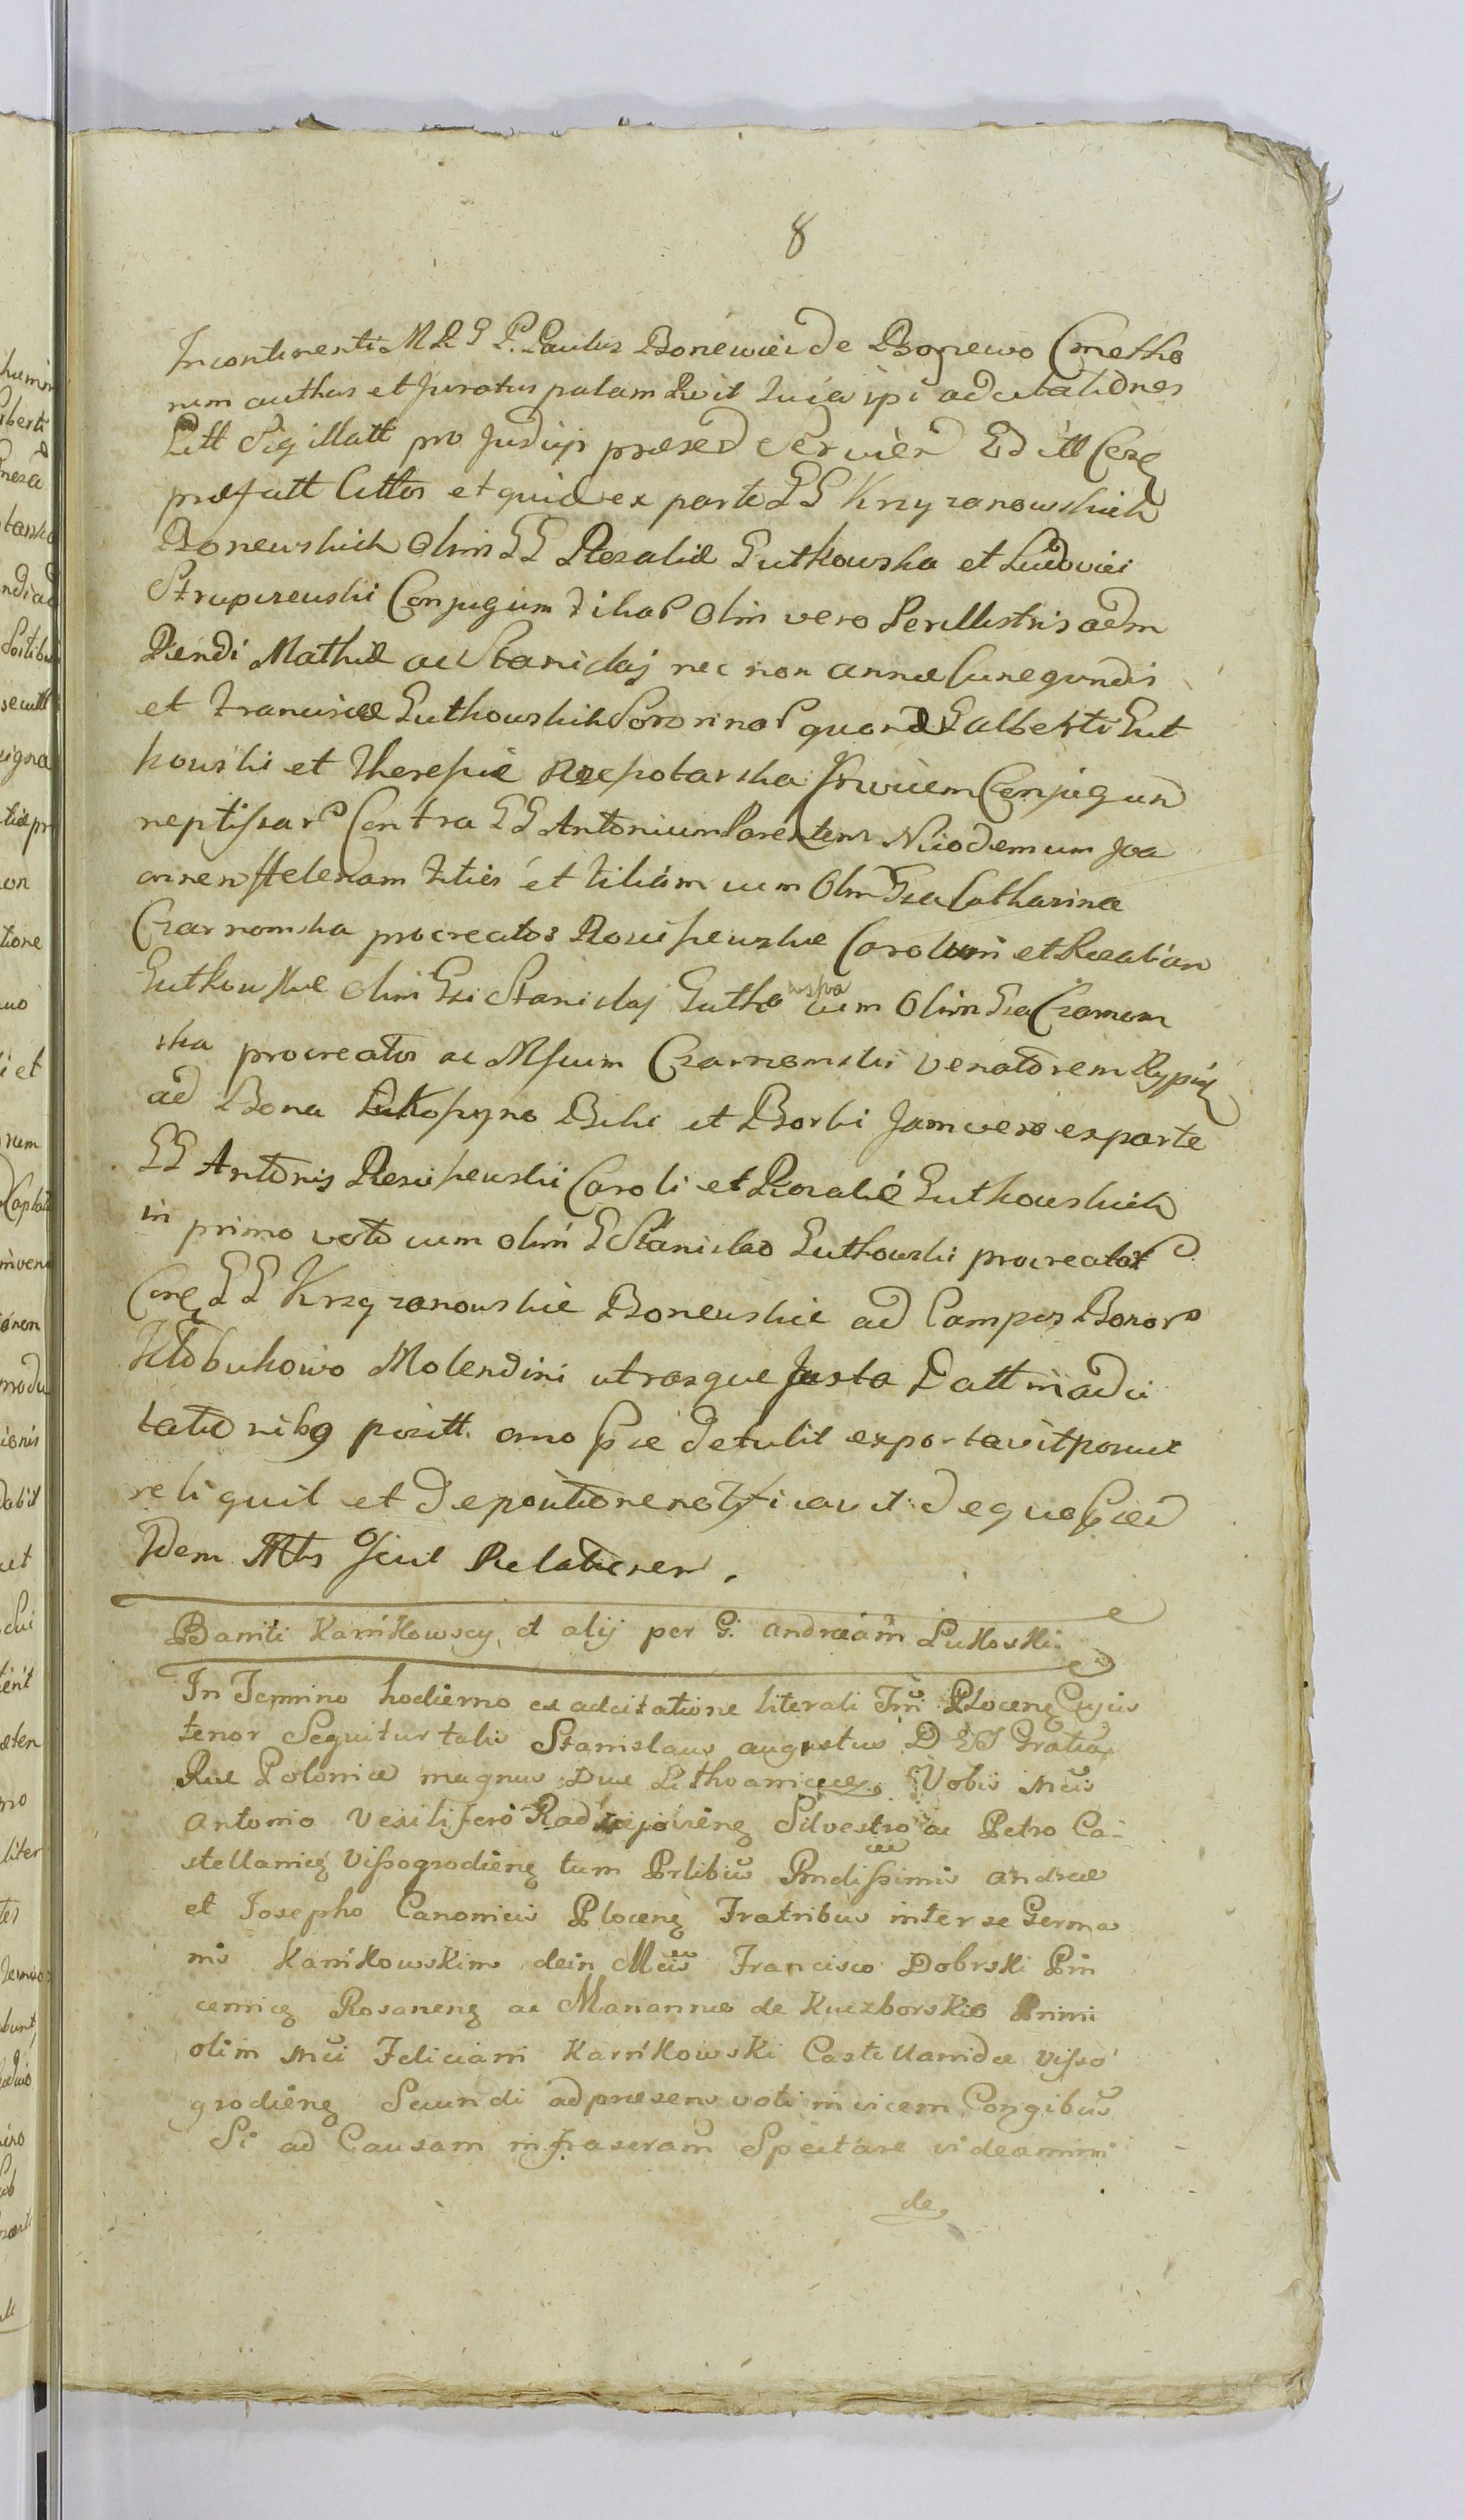 8
Incontinenti M R G P. Paulus Bonewici de Bogrewo Cmetho
num authus et Juratus palam Rvit Quia ipi adcitationes
Litt Sigillatt pro Judiys præsed Servien Ed ill Cere
præfatt littes et quid ex parte GG Krzyzanowskich
Bonewskich Olim GG Rosaliæ Gutkowska et Ludovici
Strupczewskii Conjugum filiar Olim vero Perillustris adm
Rendi Mathiæ ac Stanislaj nec non annæ Cunegundis
et Franciscæ Gutkowskich Sororinar quond Galberti Gut
kowski et Theresiæ Rzepotarska Invicem Conjugum
neptissar Contra GG Antonium Parentem Nicodemum Joa
annem Helenam Filies et Filiam cum Olim Gsa Catharina
Czarnomska procreatos Rosciszewskie Carolum et Rosaliam
Gutkowskie olim Gsi Stanislaj Gutko wska cum Olim Gsa Czarnom
ska procreatos ac Msicum Czarnomski Venatorem Rypin
ad Bona Lukoszyno Biki et Borki Jam vero ex parte
GG Antonis Rosciszewskii Caroli et Rosaliæ Gutkowskich
in primo voto cum olim G Stanislao Gutkowski procreator
Cone GG Krzyzanowskie Bonewskie ad Campos Bonor
Klobukowo Molendini utrasque Justa Datt in adci
tationibq positt. omo scie detulit exportavit posuit
reliquit et de positione notificavit de quo scied
Idem Mtis Oficit Relationem.
Banniti Karnkowscy, et alij per G. andream Lukoski
In Termino hodierno ex adcitatione literali Tri Plocene Cujus
tenor Sequitur talis Stanislaus augustus D E I Gratia
Rex Poloniæ magnus Dux Lithvaniæ etc Vobis Mcis
Antonio Vexillifero Radziejoviene Silvestro ac Petro Ca-
stellanice Vissogrodiene tum Prlibus Rndissimis andreæ
et Josepho Canonicis Plocene Fratribus inter se Germa
nis Karnkowskim dein Mcis Francisco Dobrski Pin
cernice Rosanene ac Mariannæ de Kuczborskie Primi
olim Mci Feliciani Karnkowski Castellanidæ Visso
grodiene Secundi ad præsens voti invicem Congibus
Si ad Causam infrascram Spectare videamini
de